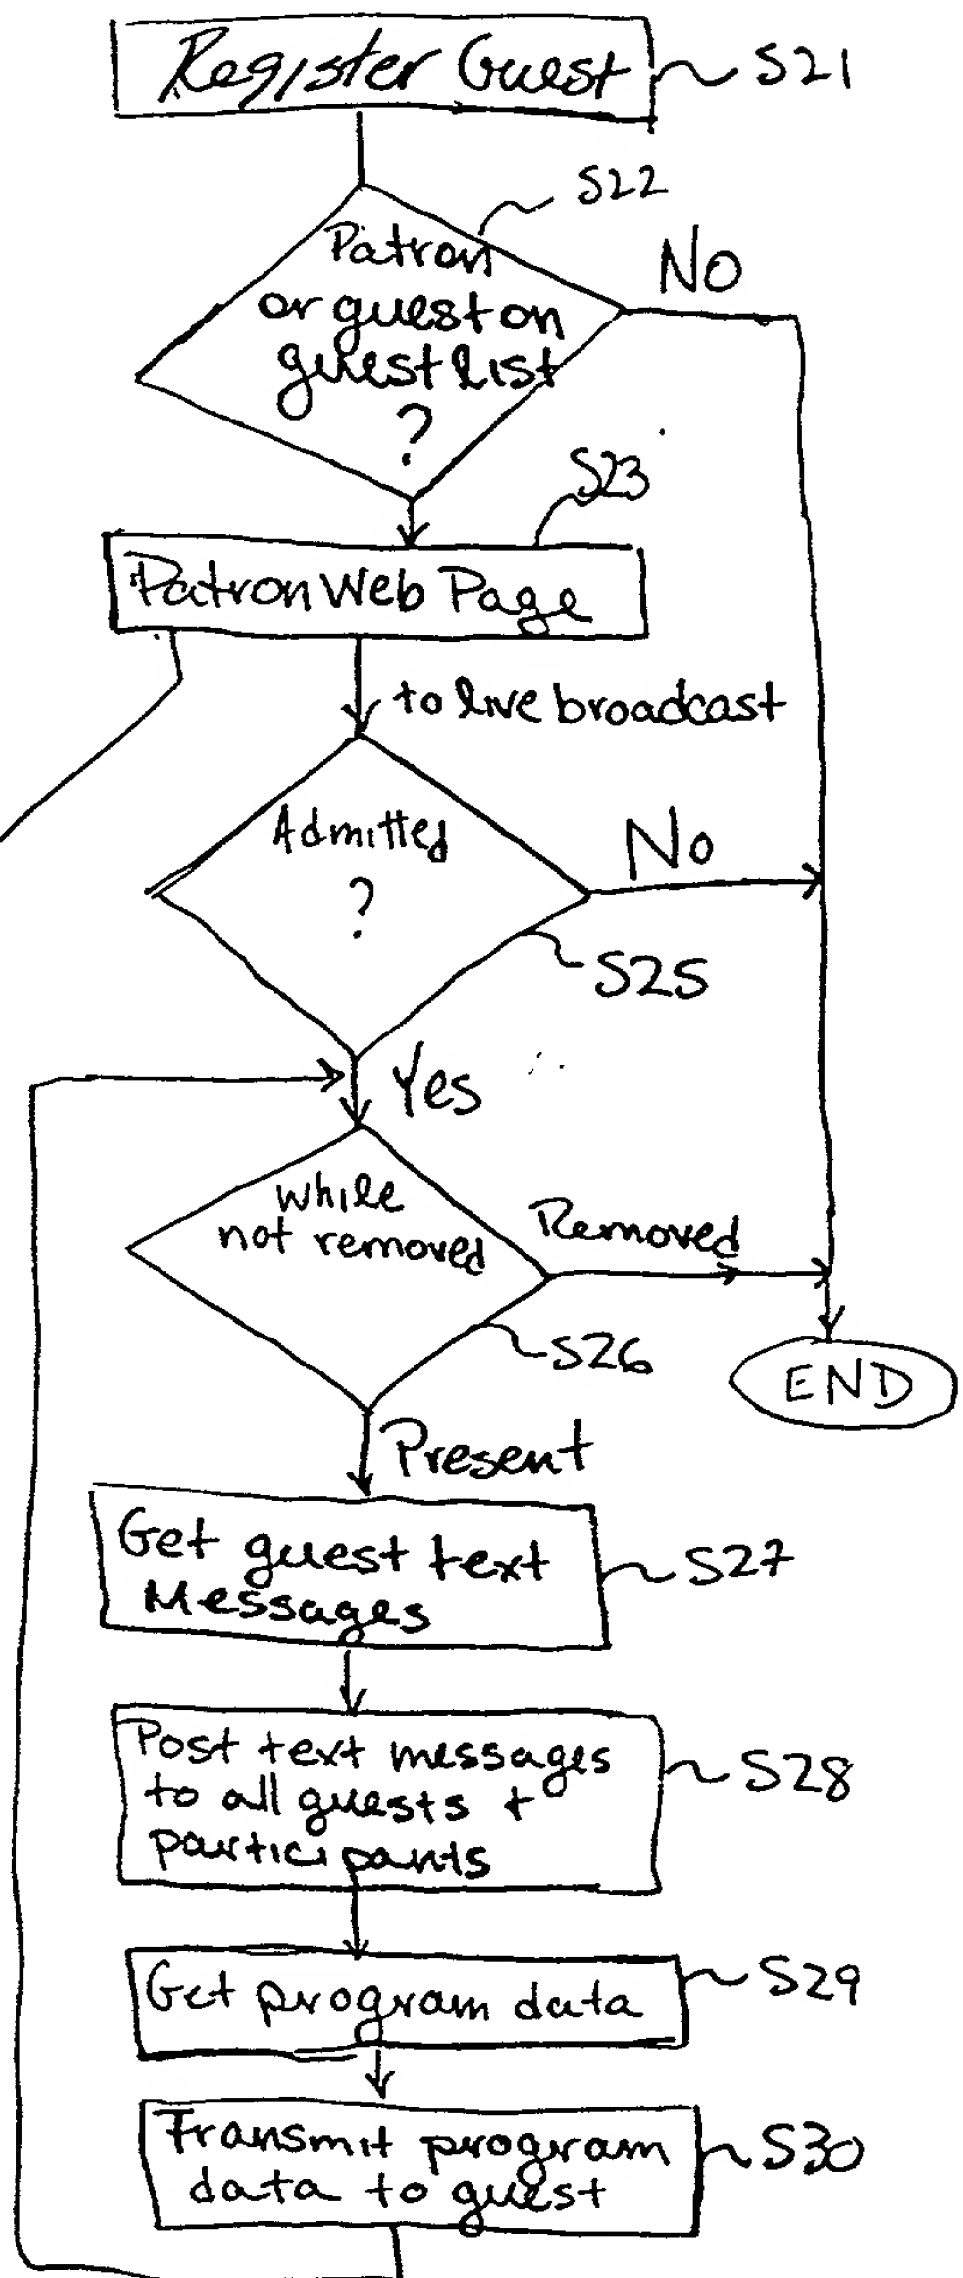 Register Guest
S21
S22
Patron
or guest on
guest list
?
No
S23
Patron Web Page
to live broadcast
Admitted
?
No
S25
Yes
while
not removed
Removed
S26
END
Present
Get guest text
Messages
S27
Post text messages
to all guests +
participants
S28
Get program data
S29
Transmit program
data to guest
S30